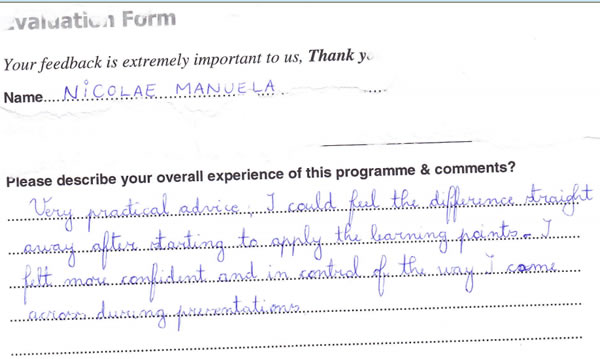 Evaluation Form
Your feedback is extremely important to us, Thank y
Name.... NICOLAE MANUELA. .....
Please describe your overall experience of this programme & comments?
Very practical advice; I could feel the difference straight
away after starting to apply the learning points. I
felt more confident and in control of the way I came
across during presentations